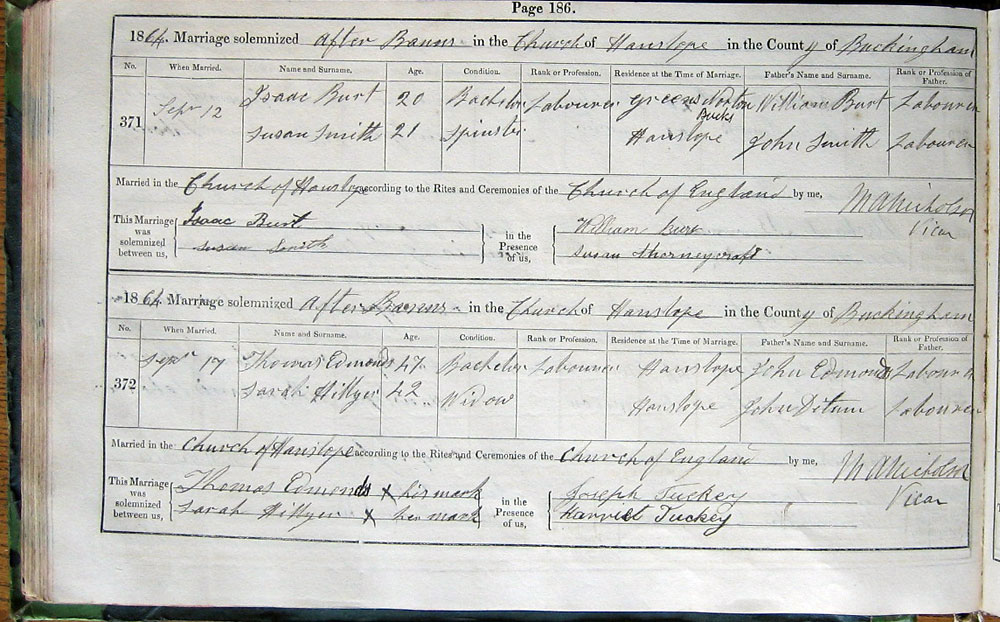 Page 186.
1864. Marriage solemnized After Banns in the Church of Hanslope in the County of Buckingham
No. When Married. Name and Surname. Age. Condition. Rank or Profession. Residence at the Time of Marriage. Father's Name and Surname. Rank or Profession of Father.
371 Sepr 12 Isaac Burt 20 Bachelor Labourer Greens Norton Bucks William Burt Labourer
Susan Smith 21 Spinster Hanslope John Smith Labourer
Married in the Church of Hanslope according to the Rites and Ceremonies of the Church of England by me,
M A Nicholson
Vicar
This Marriage was solemnized between us, Isaac Burt in the Presence of us, William Burt
Susan Smith Susan Thorneycraft
1864. Marriage solemnized After Banns in the Church of Hanslope in the County of Buckingham
No. When Married. Name and Surname. Age. Condition. Rank or Profession. Residence at the Time of Marriage. Father's Name and Surname. Rank or Profession of Father.
372 Sepr 17 Thomas Edmonds 47 Bachelor Labourer Hanslope John Edmonds Labourer
Sarah Hillyer 42 Widow Hanslope John Ditum Labourer
Married in the Church of Hanslope according to the Rites and Ceremonies of the Church of England by me,
M A Nicholson
Vicar
This Marriage was solemnized between us, Thomas Edmonds X his mark in the Presence of us, Joseph Tuckey
Sarah Hillyer X her mark Harriet Tuckey